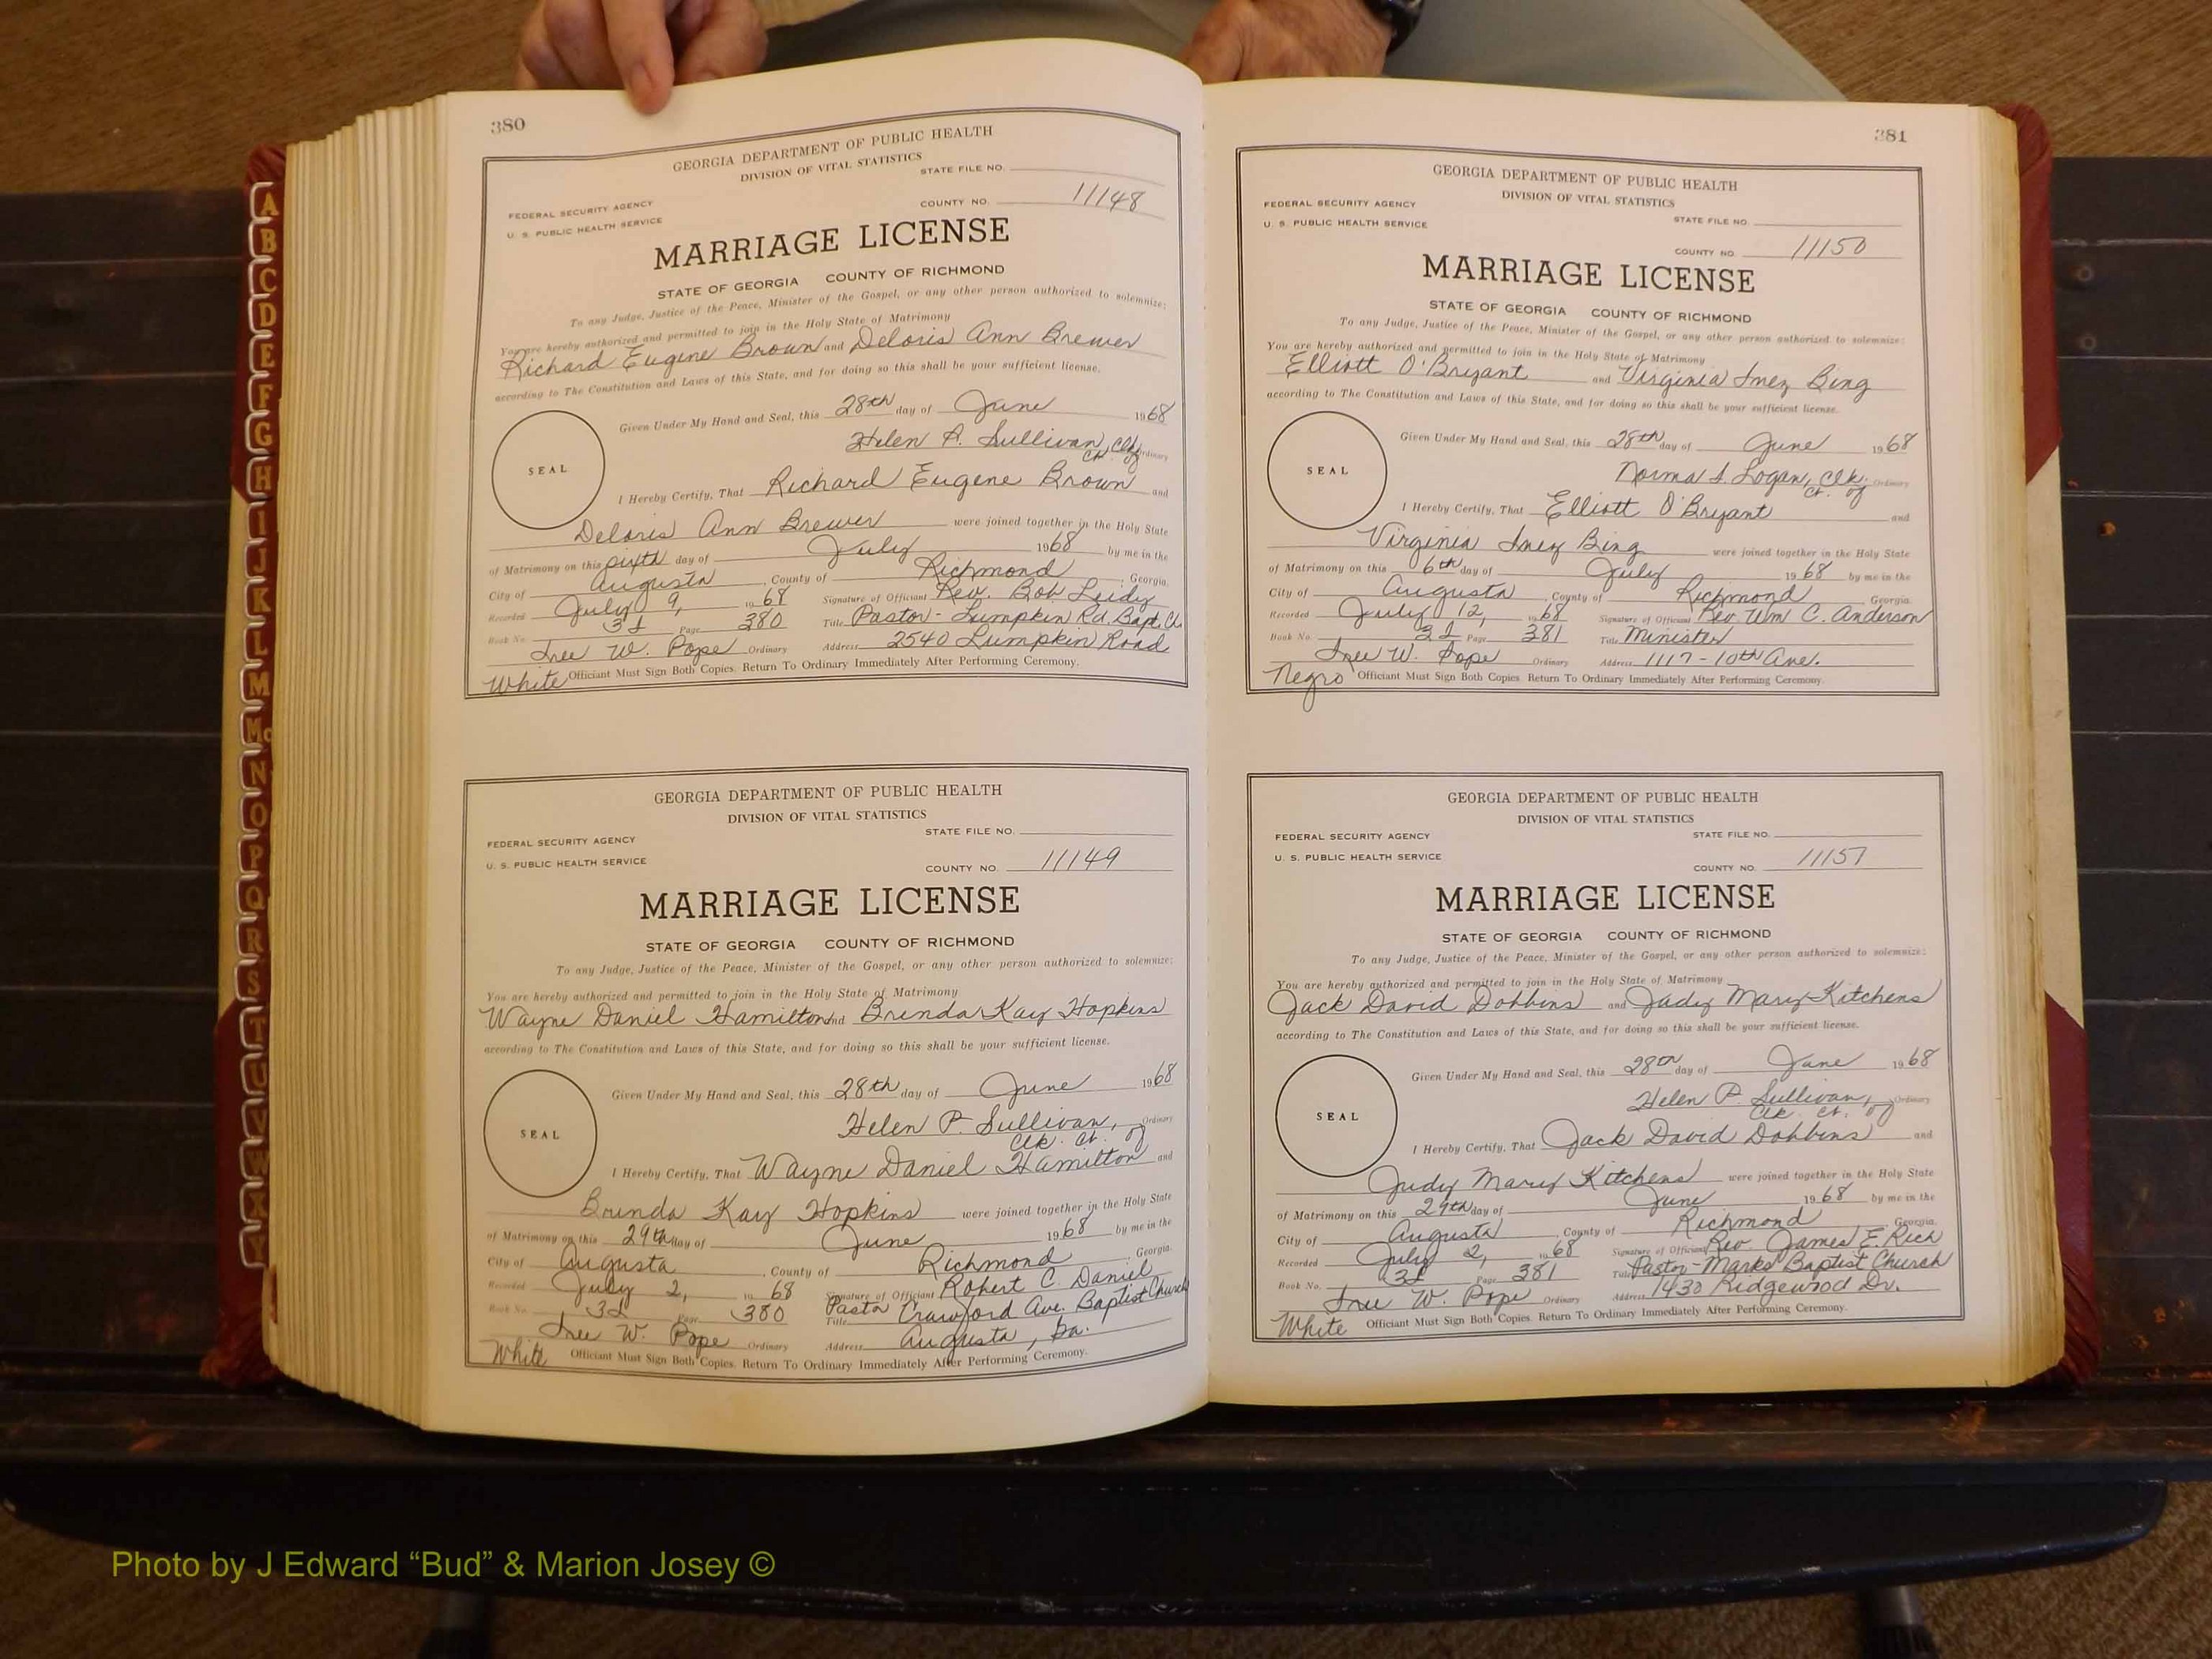 A
B
C
D
E
F
G
H
I
J
K
L
M
Mc
N
O
P
Q
R
S
T
U
V
W
X
Y
380
GEORGIA DEPARTMENT OF PUBLIC HEALTH
DIVISION OF VITAL STATISTICS
STATE FILE NO.
FEDERAL SECURITY AGENCY
COUNTY NO. 11148
U. S. PUBLIC HEALTH SERVICE
MARRIAGE LICENSE
STATE OF GEORGIA COUNTY OF RICHMOND
To any Judge, Justice of the Peace, Minister of the Gospel, or any other person authorized to solemnize:
You are hereby authorized and permitted to join in the Holy State of Matrimony
Richard Eugene Brown and Deloris Ann Brewer
according to The Constitution and Laws of this State, and for doing so this shall be your sufficient license.
Given Under My Hand and Seal, this 28th day of June 1968
Helen P. Sullivan, Clk.
Ct. of Ordinary
SEAL
I Hereby Certify, That Richard Eugene Brown and
Deloris Ann Brewer were joined together in the Holy State
of Matrimony on this sixth day of July 1968 by me in the
City of Augusta, County of Richmond, Georgia.
Recorded July 9, 1968 Signature of Officiant Rev. Bob Leidy
Book No. 3L Page 380 Title Pastor - Lumpkin Rd. Bapt. Ch.
W. Pope Ordinary Address 2540 Lumpkin Road
White Officiant Must Sign Both Copies. Return To Ordinary Immediately After Performing Ceremony.
GEORGIA DEPARTMENT OF PUBLIC HEALTH
DIVISION OF VITAL STATISTICS
STATE FILE NO.
FEDERAL SECURITY AGENCY
U. S. PUBLIC HEALTH SERVICE
COUNTY NO. 11149
MARRIAGE LICENSE
STATE OF GEORGIA COUNTY OF RICHMOND
To any Judge, Justice of the Peace, Minister of the Gospel, or any other person authorized to solemnize:
You are hereby authorized and permitted to join in the Holy State of Matrimony
Wayne Daniel Hamilton and Brenda Kay Hopkins
according to The Constitution and Laws of this State, and for doing so this shall be your sufficient license.
Given Under My Hand and Seal, this 28th day of June 1968
Helen P. Sullivan, Ordinary
Clk. Ct. of
SEAL
I Hereby Certify, That Wayne Daniel Hamilton and
Brenda Kay Hopkins were joined together in the Holy State
of Matrimony on this 29th day of June 1968 by me in the
City of Augusta, County of Richmond, Georgia.
Recorded July 2, 1968 Signature of Officiant Robert C. Daniel
Book No. 3L Page 380 Title Pastor Crawford Ave. Baptist Church
W. Pope Ordinary Address Augusta, Ga.
White Officiant Must Sign Both Copies. Return To Ordinary Immediately After Performing Ceremony.
381
GEORGIA DEPARTMENT OF PUBLIC HEALTH
DIVISION OF VITAL STATISTICS
FEDERAL SECURITY AGENCY
STATE FILE NO.
U. S. PUBLIC HEALTH SERVICE
COUNTY NO. 11150
MARRIAGE LICENSE
STATE OF GEORGIA COUNTY OF RICHMOND
To any Judge, Justice of the Peace, Minister of the Gospel, or any other person authorized to solemnize:
You are hereby authorized and permitted to join in the Holy State of Matrimony
Elliott O'Bryant and Virginia Inez Bing
according to The Constitution and Laws of this State, and for doing so this shall be your sufficient license.
Given Under My Hand and Seal, this 28th day of June 1968
Norma S. Logan, Clk. Ordinary
Ct. of
SEAL
I Hereby Certify, That Elliott O'Bryant and
Virginia Inez Bing were joined together in the Holy State
of Matrimony on this 6th day of July 1968 by me in the
City of Augusta, County of Richmond Georgia.
Recorded July 12, 1968 Signature of Officiant Rev. Wm C. Anderson
Book No. 3L Page 381 Title Minister
W. Pope Ordinary Address 1117 - 10th Ave.
Negro Officiant Must Sign Both Copies. Return To Ordinary Immediately After Performing Ceremony.
GEORGIA DEPARTMENT OF PUBLIC HEALTH
DIVISION OF VITAL STATISTICS
FEDERAL SECURITY AGENCY
STATE FILE NO.
U. S. PUBLIC HEALTH SERVICE
COUNTY NO. 11151
MARRIAGE LICENSE
STATE OF GEORGIA COUNTY OF RICHMOND
To any Judge, Justice of the Peace, Minister of the Gospel, or any other person authorized to solemnize:
You are hereby authorized and permitted to join in the Holy State of Matrimony
Jack David Dobbins and Judy Mary Kitchens
according to The Constitution and Laws of this State, and for doing so this shall be your sufficient license.
Given Under My Hand and Seal, this 28th day of June 1968
Helen P. Sullivan, Ordinary
Clk. Ct. of
SEAL
I Hereby Certify, That Jack David Dobbins and
Judy Mary Kitchens were joined together in the Holy State
of Matrimony on this 29th day of June 1968 by me in the
City of Augusta, County of Richmond Georgia.
Recorded July 2, 1968 Signature of Officiant Rev James E. Rich
Book No. 3L Page 381 Title Pastor - Marks Baptist Church
W. Pope Ordinary Address 1430 Ridgewood Dr.
White Officiant Must Sign Both Copies. Return To Ordinary Immediately After Performing Ceremony.
Photo by J Edward “Bud” & Marion Josey ©